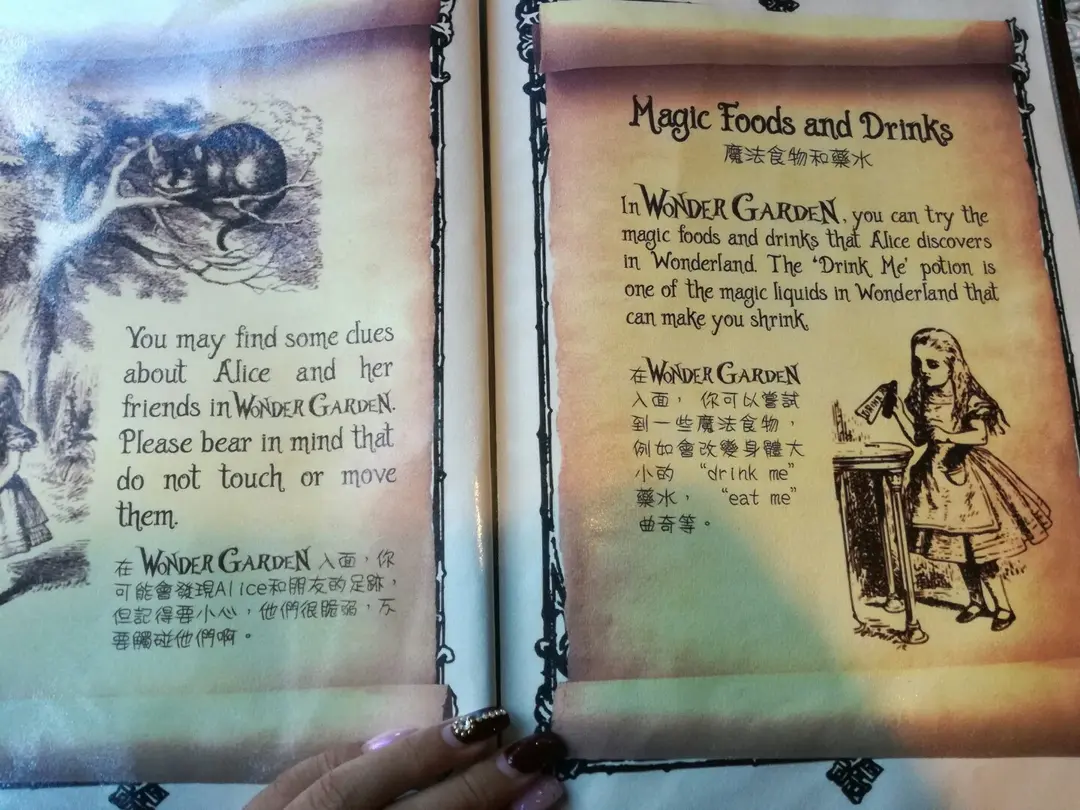 You may find some clues
about Alice and her
friends in WONDER GARDEN.
Please bear in mind that
do not touch or move
them.
在 WONDER GARDEN 入面，你
可能會發現Alice和朋友的足跡，
但記得要小心，他們很脆弱，不
要觸碰他們啊。
Magic Foods and Drinks
魔法食物和藥水
In WONDER GARDEN, you can try the
magic foods and drinks that Alice discovers
in Wonderland. The 'Drink Me' potion is
one of the magic liquids in Wonderland that
can make you shrink.
在WONDER GARDEN
入面，你可以嘗試
到一些魔法食物，
例如會改變身體大
小的 "drink me"
藥水， "eat me"
曲奇等。